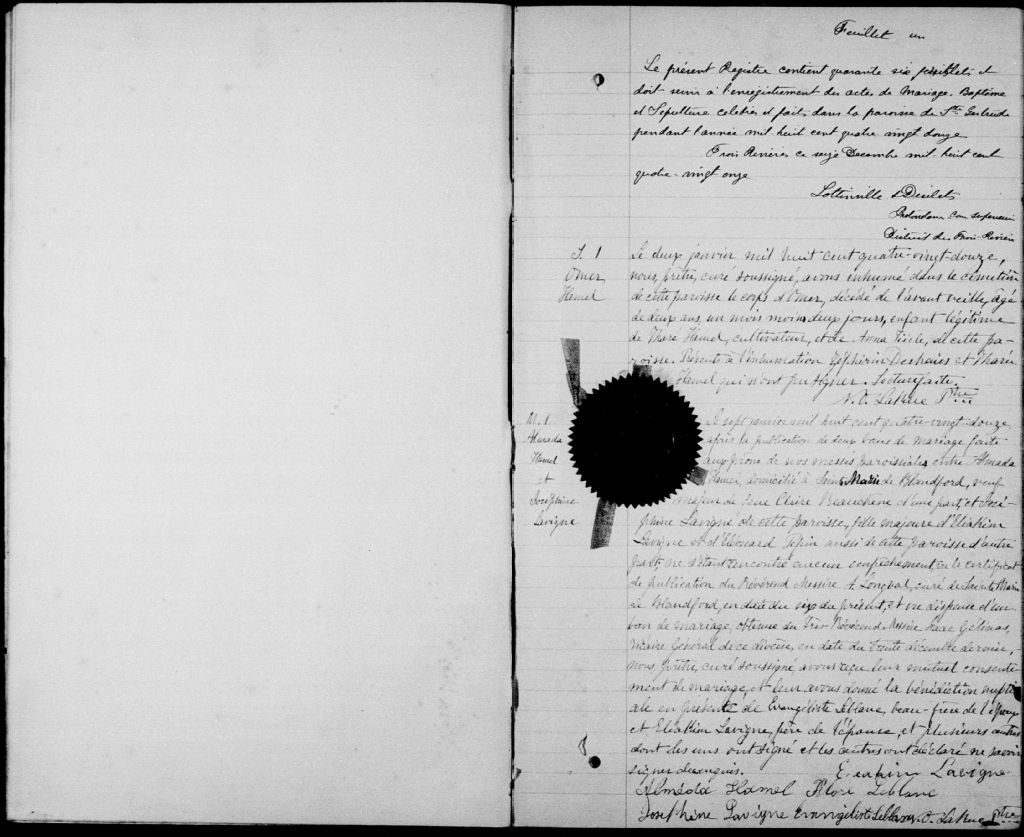 Feuillet un
Le présent Registre contient quarante six feuillets et
doit servir à l'enregistrement des actes de Mariage. Baptême
et Sépulture célébrés et faits dans la paroisse de Ste Gertrude
pendant l'année mil huit cent quatre vingt douze
Trois Rivières ce seize Decembre mil-huit cent
quatre-vingt onze
Lottinville & Désilets
District des Trois-Rivières
S. 1
Omer
Hamel
Le deux janvier mil huit cent quatre-vingt-douze,
nous, prêtre, curé soussigné, avons inhumé dans le cimetière
de cette paroisse le corps d'Omer, décédé de l'avant veille, âgé
de deux ans, un mois moins deux jours, enfant légitime
de Tharé Hamel, cultivateur, et de Anna, de cette pa-
roisse. Présents à l'inhumation Zéphirin Deshaies et Tharé
Hamel qui n'ont pu signer. Lecture faite.
N. O. LaRue Ptre
M. 1
Almeda
Hamel
et
Joséphine
Lavigne
Le sept janvier mil huit cent quatre-vingt-douze,
après la publication de deux bans de mariage faite
aux prône de nos messes paroissiales entre Almada
Hamel, domicilié à Sainte Marie de Blandford, veuf
majeur de feue Claire Beauchêne d'une part, et José-
phine Lavigne de cette paroisse, fille majeure d'Eliakim
Lavigne et d'Eléonard Pepin aussi de cette paroisse d'autre
part; ne s'étant rencontré aucun empêchement, vu le certificat
de publication du Révérend Messire A. Longval, curé de Sainte Marie
de Blandford, en date du six du présent, et vu dispense d'un
ban de mariage, obtenue du Très-Révérend Messire Isaac Gélinas,
Vicaire Général de ce diocèse, en date du trente décembre dernier,
nous prêtre, curé soussigné, avons reçu leur mutuel consente-
ment de mariage, et leur avons donné la bénédiction nupti-
ale en présence de Evangéliste Leblanc, beau-frère de l'époux
et Eliakim Lavigne, père de l'épouse, et plusieurs autres
dont les uns ont signé et les autres ont déclaré ne savoir
signer de enquis.
Eliakim Lavigne
Alméda Hamel Flore Leblanc
Josephine Lavigne Evangeliste Leblanc N. O. LaRue Ptre